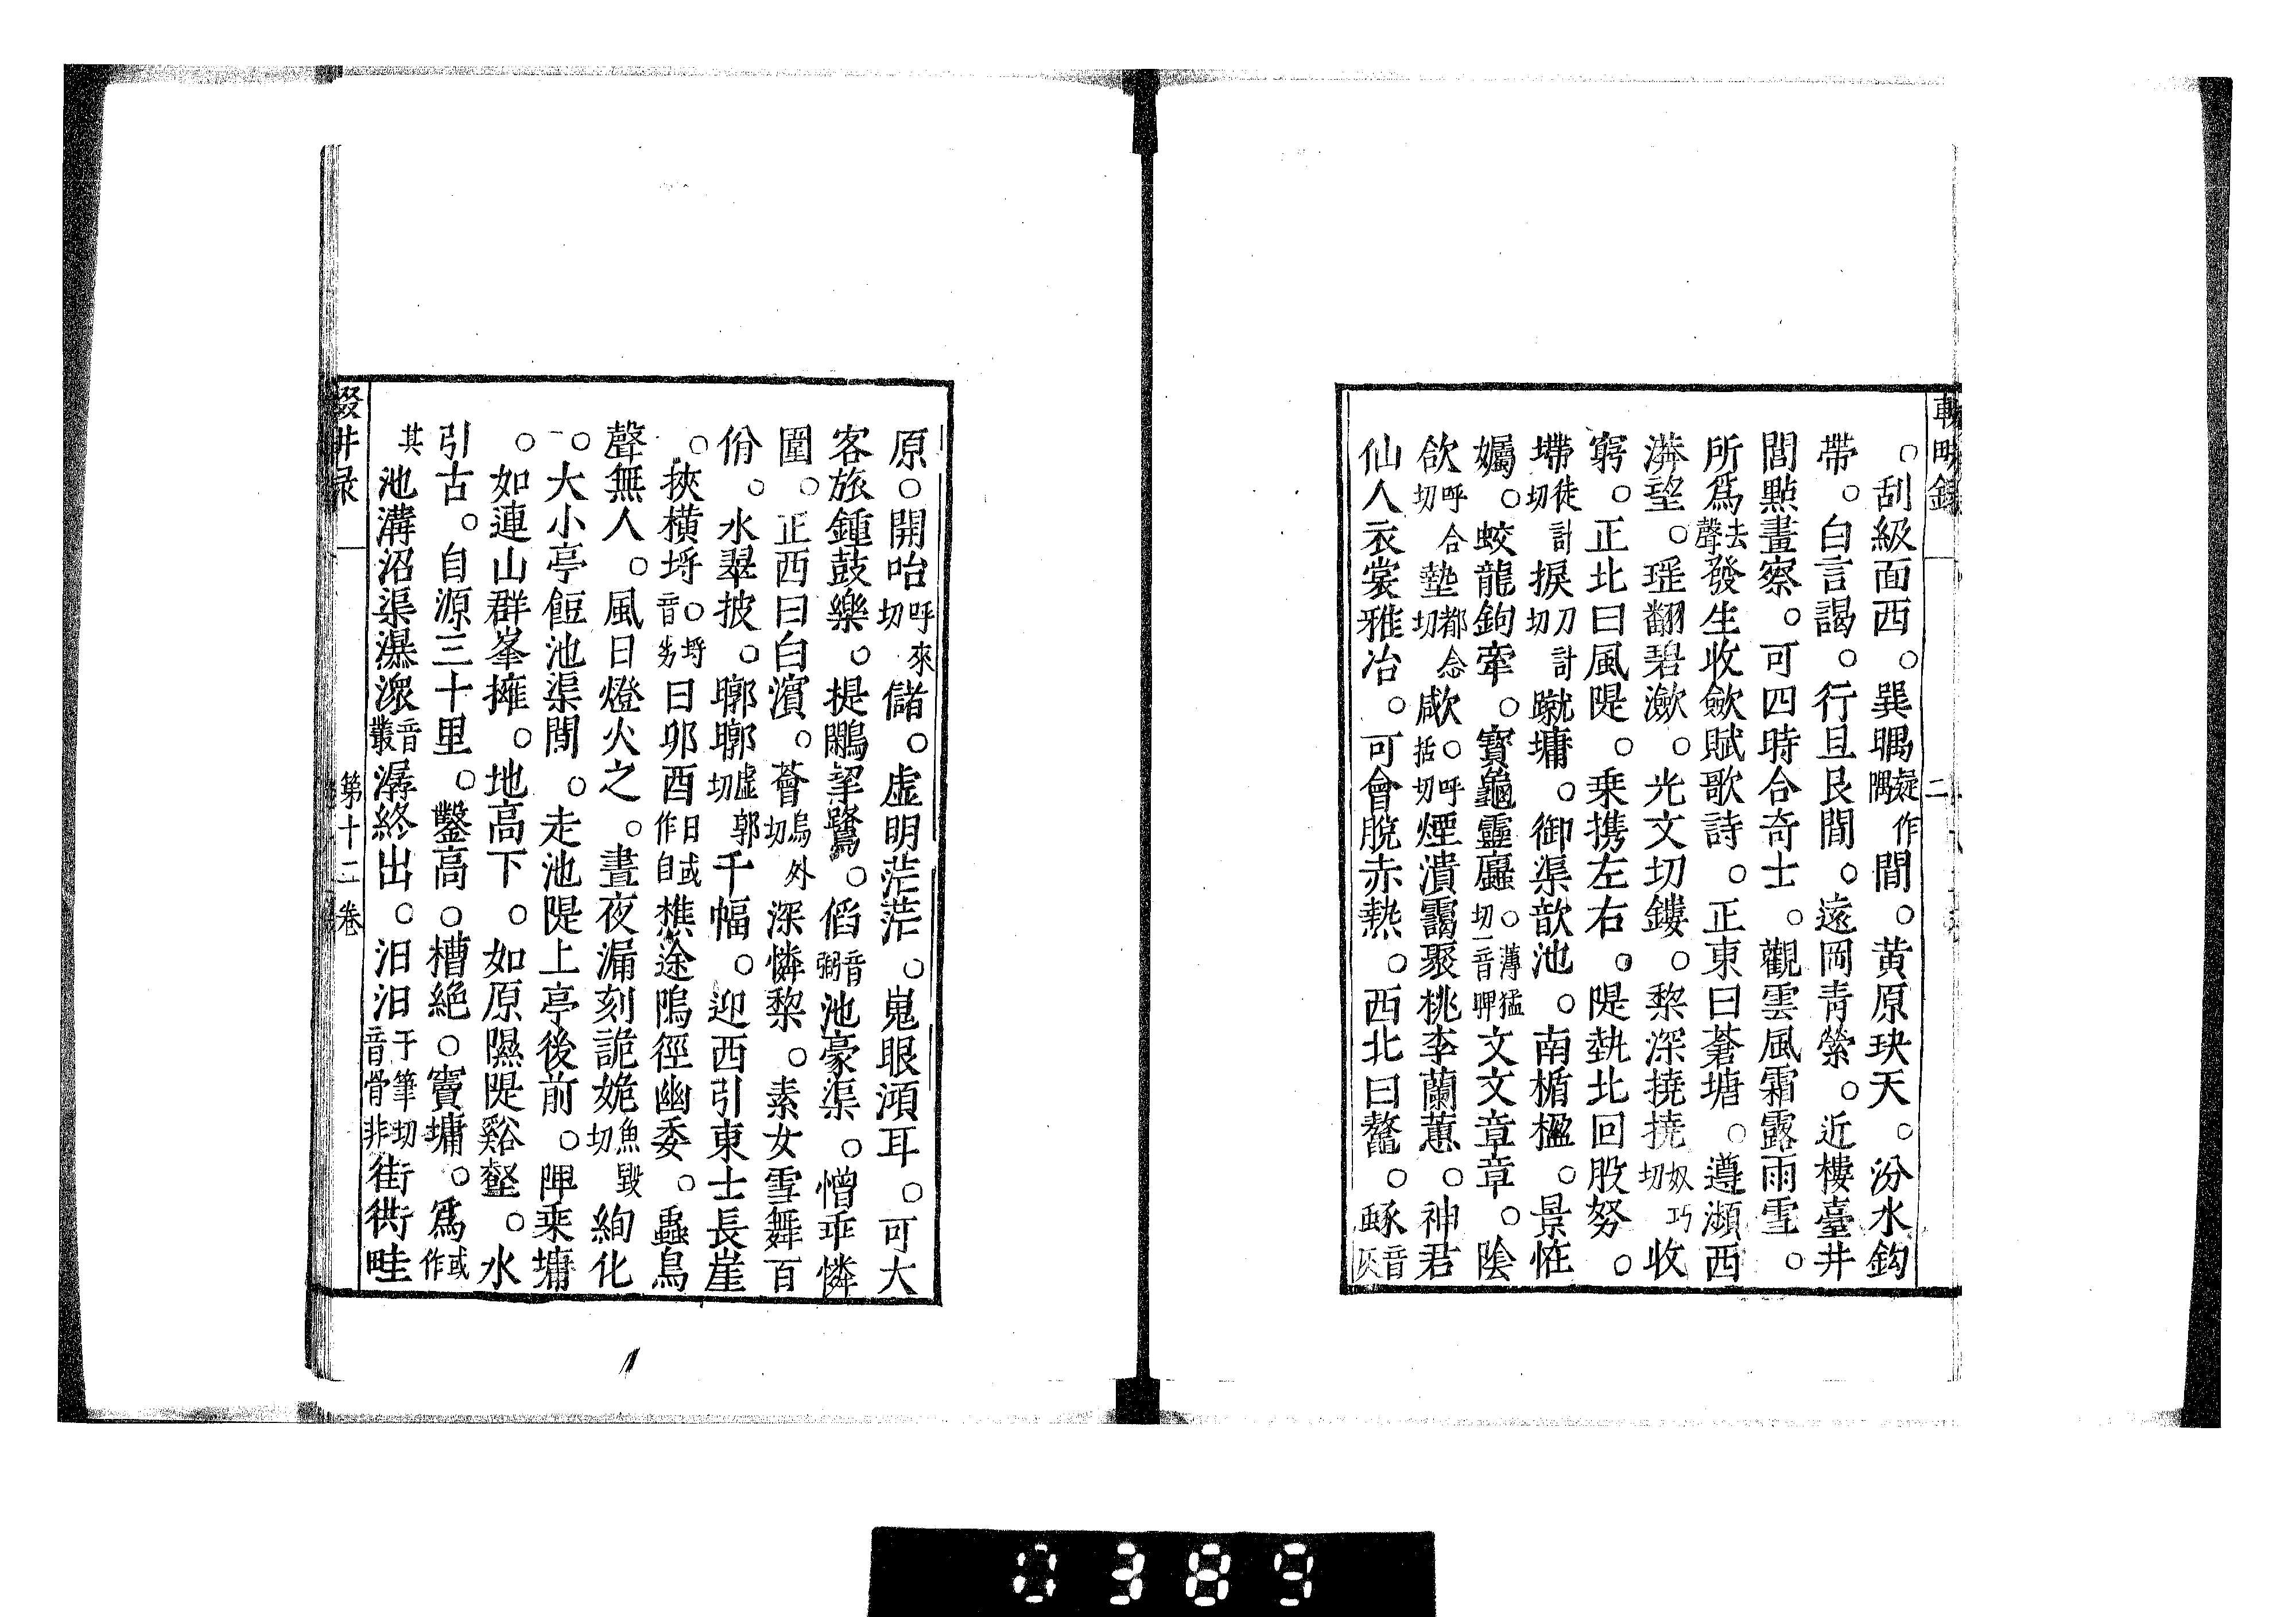 輟畊錄 二
○刮級面西○巽㫹疑作隅間○黃原玦天○汾水鈎
帶○白言謁○行旦艮間○遠岡青縈○近樓臺井
閭點畫察○可四時合奇士○觀雲風霜露雨雪○
所爲去聲發生收斂賦歌詩○正東曰蒼塘○遵瀕西
漭望○瑶翻碧瀲○光文切鏤○棃深撓撓奴巧切收
窮○正北曰風隄○乗携左右○隄執北回股努○
墆徒計切捩力計切蹴墉○御渠歆池○南楯楹○景恠
爥○蛟龍鉤牽○寶龜靈䗪○薄猛切一音睥文文章章○陰
欱呼合切墊都念切㰹○呼括切煙潰靄聚桃李蘭蕙○神君
仙人衣裳雅冶○可會脫赤熱○西北曰鼇○𧱓音灰
原○開咍呼來切儲○虛明茫茫○嵬眼澒耳○可大
客旅鍾鼓樂○提鵰挈鷺○㑃音弼池豪渠○憎乖憐
圍○正西曰白濱○薈烏外切深憐棃○素女雪舞百
佾○水翠披○㗥㗥虛郭切千幅○迎西引東士長崖
○挾橫埒○埒音劣日卯酉日或作自樵途隝徑幽委○蟲鳥
聲無人○風日燈火之○晝夜漏刻詭姽魚毀切絢化
○大小亭餖池渠間○走池隄上亭後前○陴乗墉
○如連山群峯擁○地高下○如原隰隄谿壑○水
引古○自源三十里○鑿高○槽絕○竇墉○爲或作
其池溝沼渠瀑潨音叢潺終出○汩汩于筆切音骨非街衖畦
輟井录 第十二卷
0389